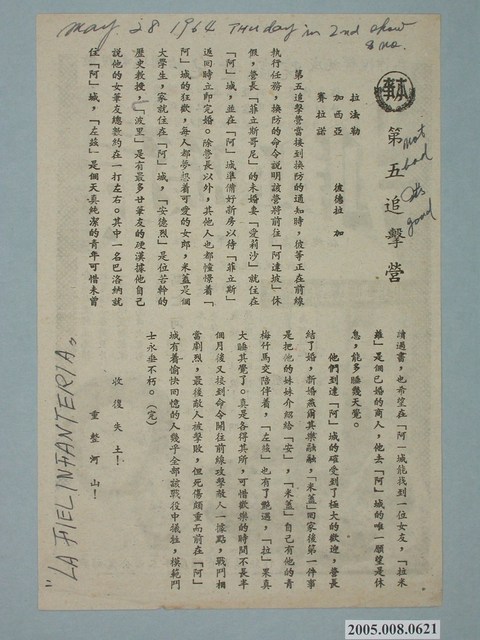 may 28 1964 THUday in 2nd show
& no.
本事
第五追擊營
not bad
its good
拉法勒
加西亞 彼德拉 加
賽拉諾
第五追擊營當接到換防的通知時，彼等正在前線
執行任務，換防的命令說明該營將前往「阿達坡」休
假，營長「菲立斯哥尼」的未婚妻「愛莉沙」就住在
「阿」城，並在「阿」城準備好新房以待「菲立斯」
返回時立即完婚。除營長以外，其他人也都憧憬着「
阿」城的狂歡，每人都夢想着可愛的女郎，米蓋是個
大學生，家就住在「阿」城，「安德烈」是位苦幹的
歷史教授，「波里」是有最多廿筆友的硬漢據他自己
說他的女筆友總數約在一打左右。其中一名巴洛納就
住「阿」城，「左茲」是個天真純潔的青年可惜未曾
讀過書，也希望在「阿」城能找到一位女友，「拉米
羅」是個已婚的商人，他去「阿」城的唯一願望是休
息，能多睡幾天覺。
他們到達「阿」城的確受到了極大的歡迎，營長
結了婚，新婚燕爾其樂融融，「米蓋」回家後第一件事
是把他的妹妹介紹給「安」，「米蓋」自己有他的青
梅竹馬交陪伴着，「左茲」也有了艷遇，「拉」果真
大睡其覺了。真是各得其所，可惜歡樂的時間不長半
個月後又接到命令開往前線攻擊敵人一據點，戰鬥相
當劇烈，最後敵人被擊敗，但死傷頗重而前在「阿」
城有着愉快回憶的人幾乎全部該戰役中犧牲，模範鬥
士永垂不朽。（完）
收復失土！
重整河山！
"LA FIEL INFANTERIA"
2005.008.0621